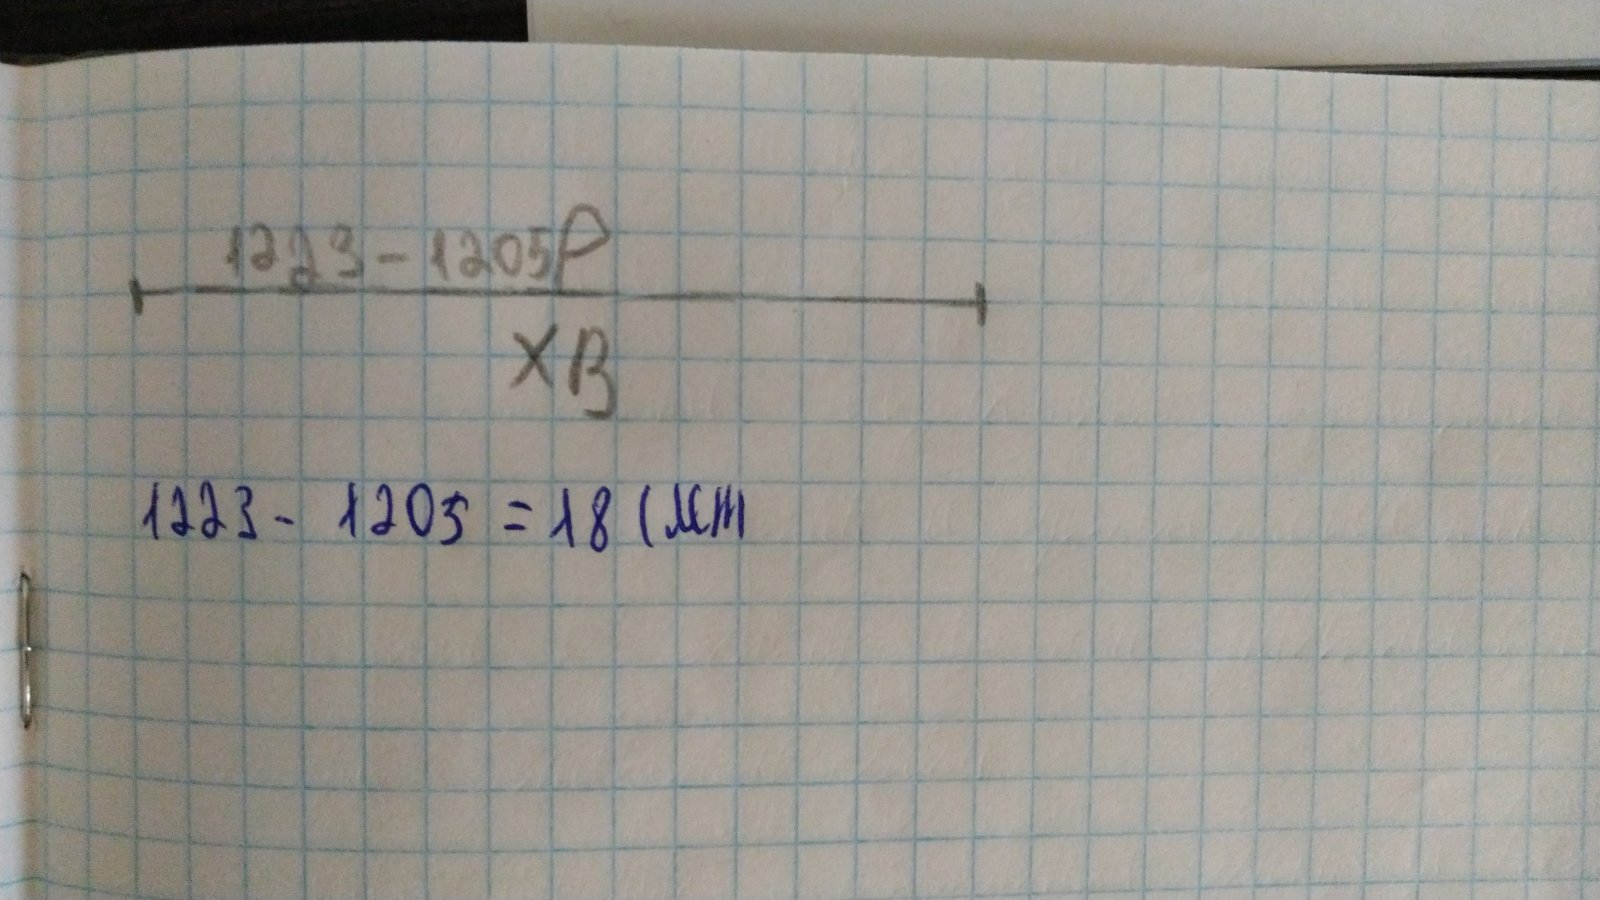 1223-1205р
хв
1223- 1205 =18 (лет